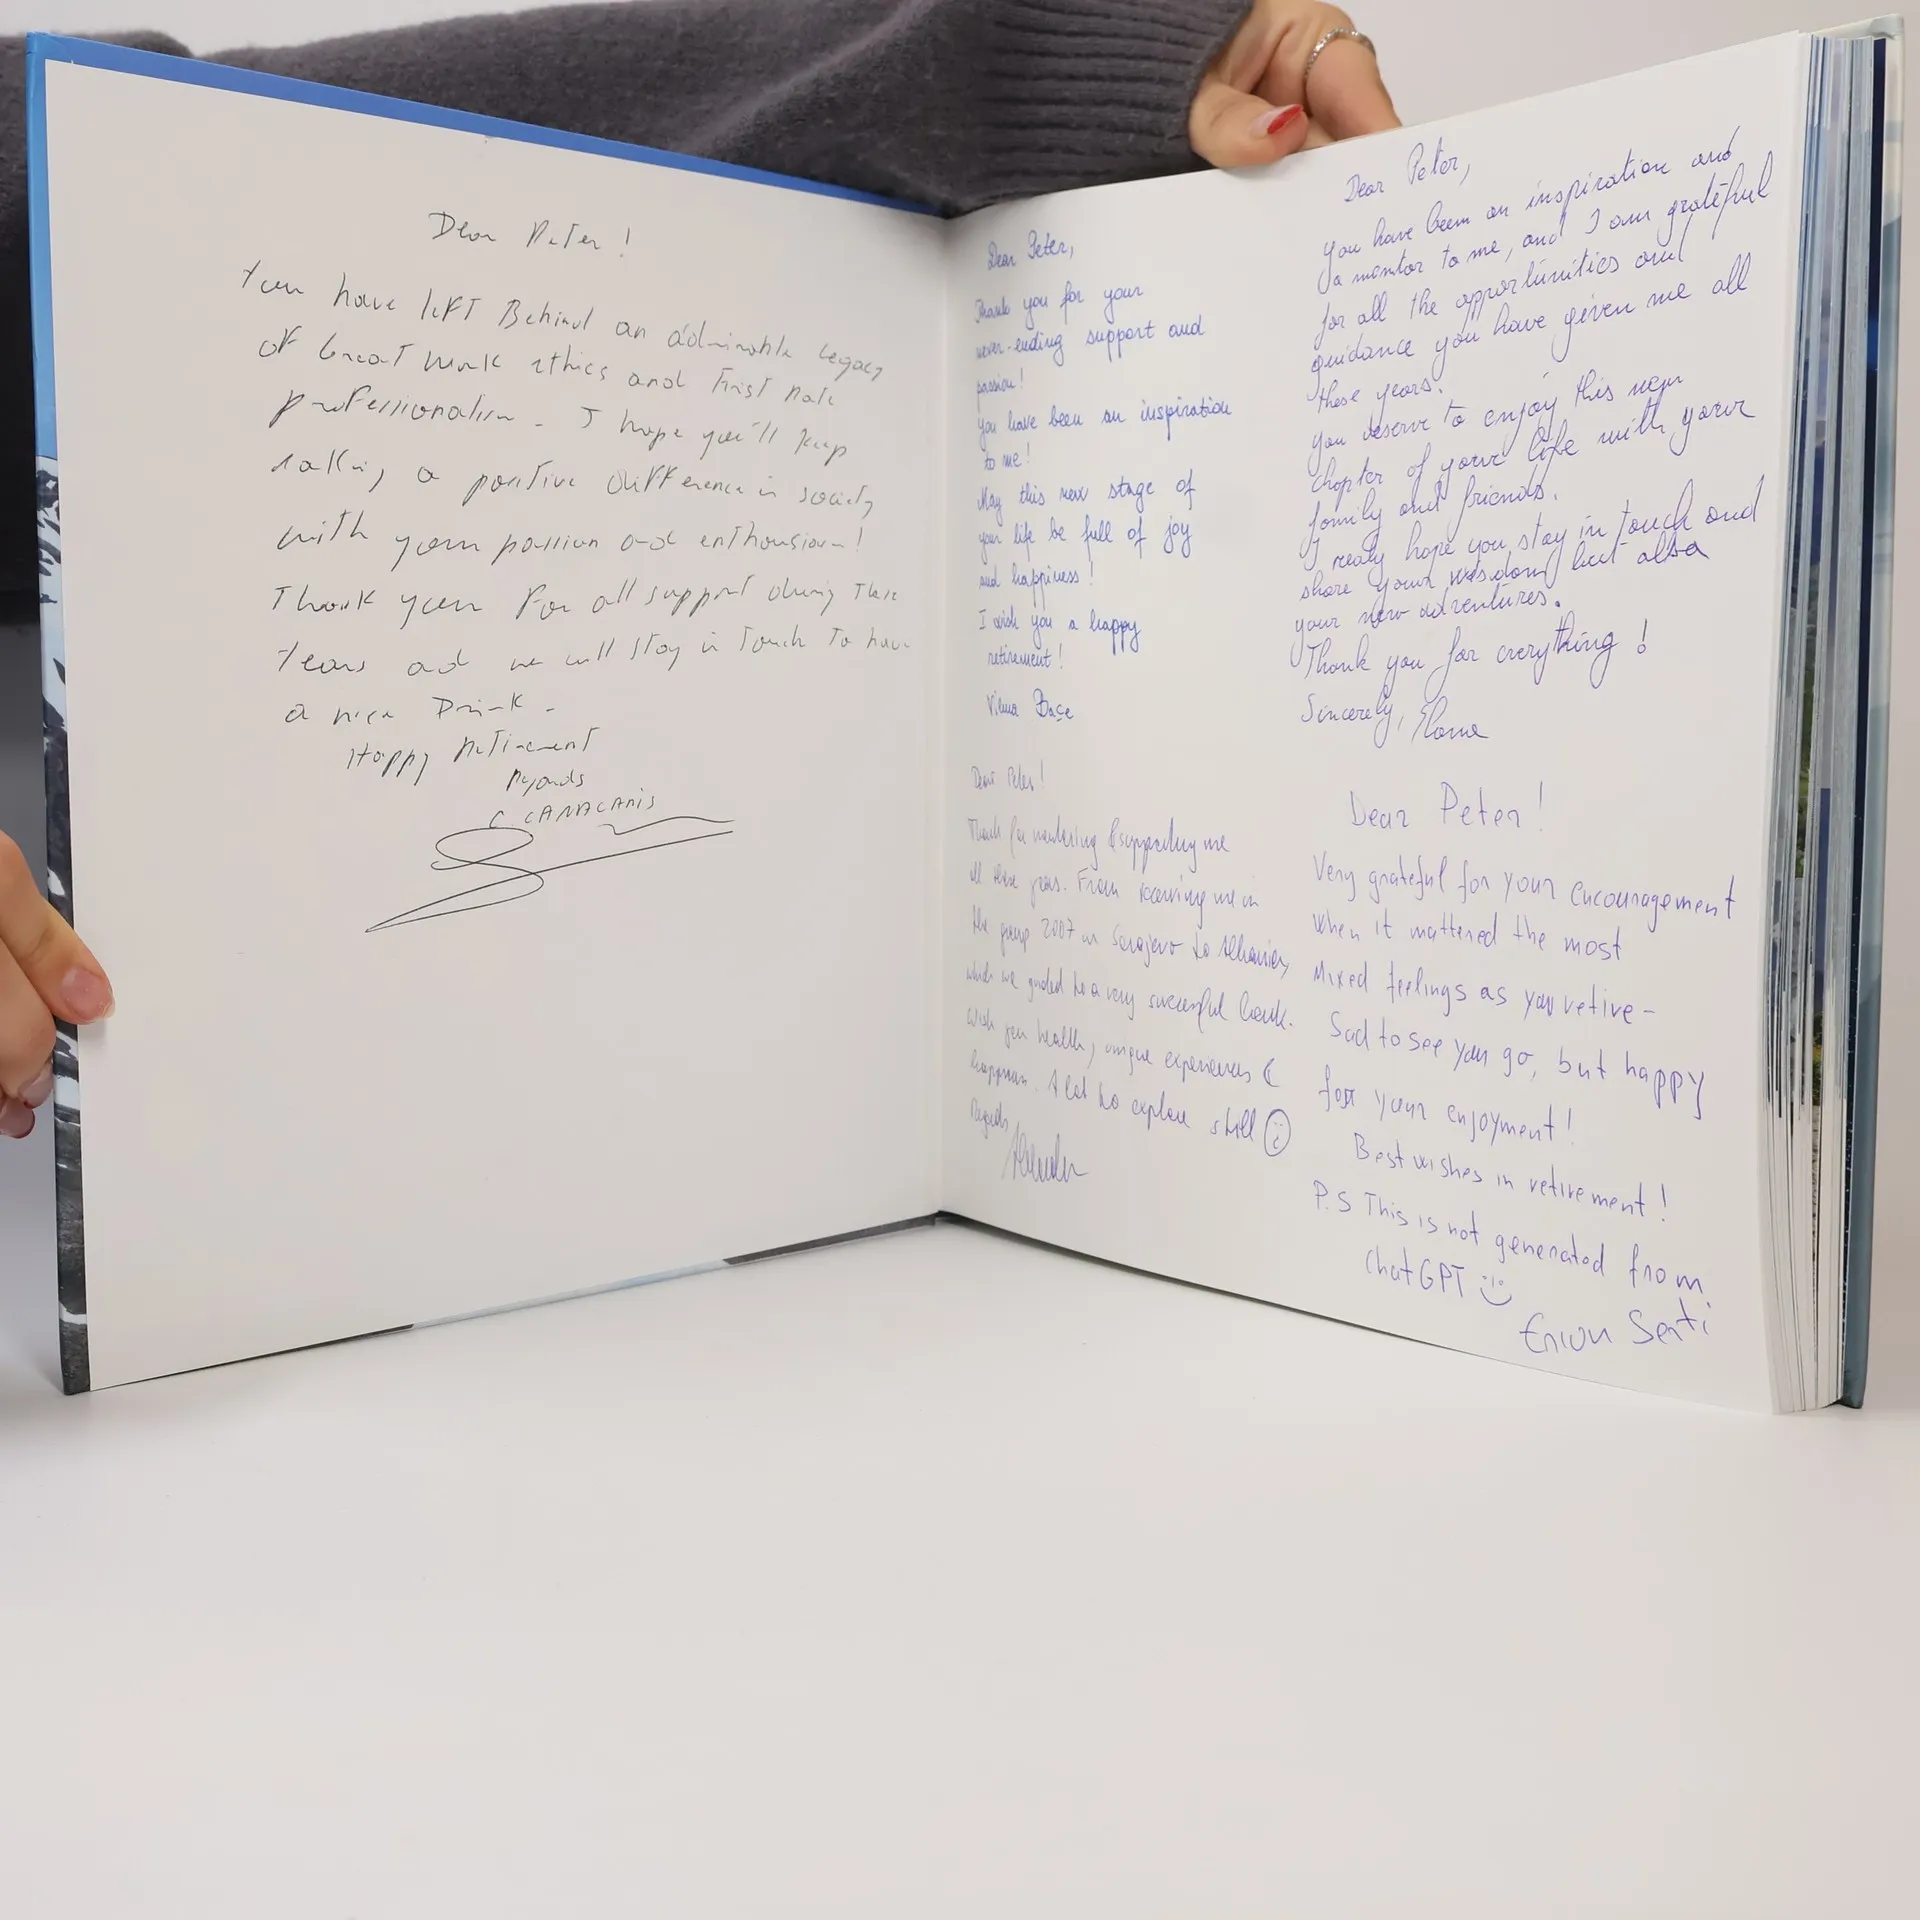 Dear Peter!
You have left Behind an admirable legacy
of Great work ethics and First Rate
professionalism. I hope you'll keep
making a positive difference in society
with your passion and enthousiasm!
Thank you For all support during these
years and we will stay in Touch To have
a nice Drink.
Happy Retirement
Regards
Dear Peter,
Thank you for your
never-ending support and
passion!
you have been an inspiration
to me!
May this new stage of
your life be full of joy
and happiness!
I wish you a happy
retirement!
Vilma Baçe
Dear Peter!
Thank for mentoring & supporting me
all these years. From receiving me in
the group 2007 in Sarajevo to Albania,
which we guided to a very successful bank.
Wish you health, unique experiences &
happiness. A lot to explore still
Regards,
Dear Peter,
you have been an inspiration and
a mentor to me, and I am grateful
for all the opportunities and
guidance you have given me all
these years.
you deserve to enjoy this new
chapter of your life with your
family and friends.
I realy hope you stay in touch and
share your wisdom but also
your new adventures.
Thank you for everything!
Sincerely,
Dear Peter!
Very grateful for your encouragement
when it mattered the most
Mixed feelings as you retire -
Sad to see you go, but happy
for your enjoyment!
Best wishes in retirement!
P.S This is not generated from
ChatGPT
Erion Serti